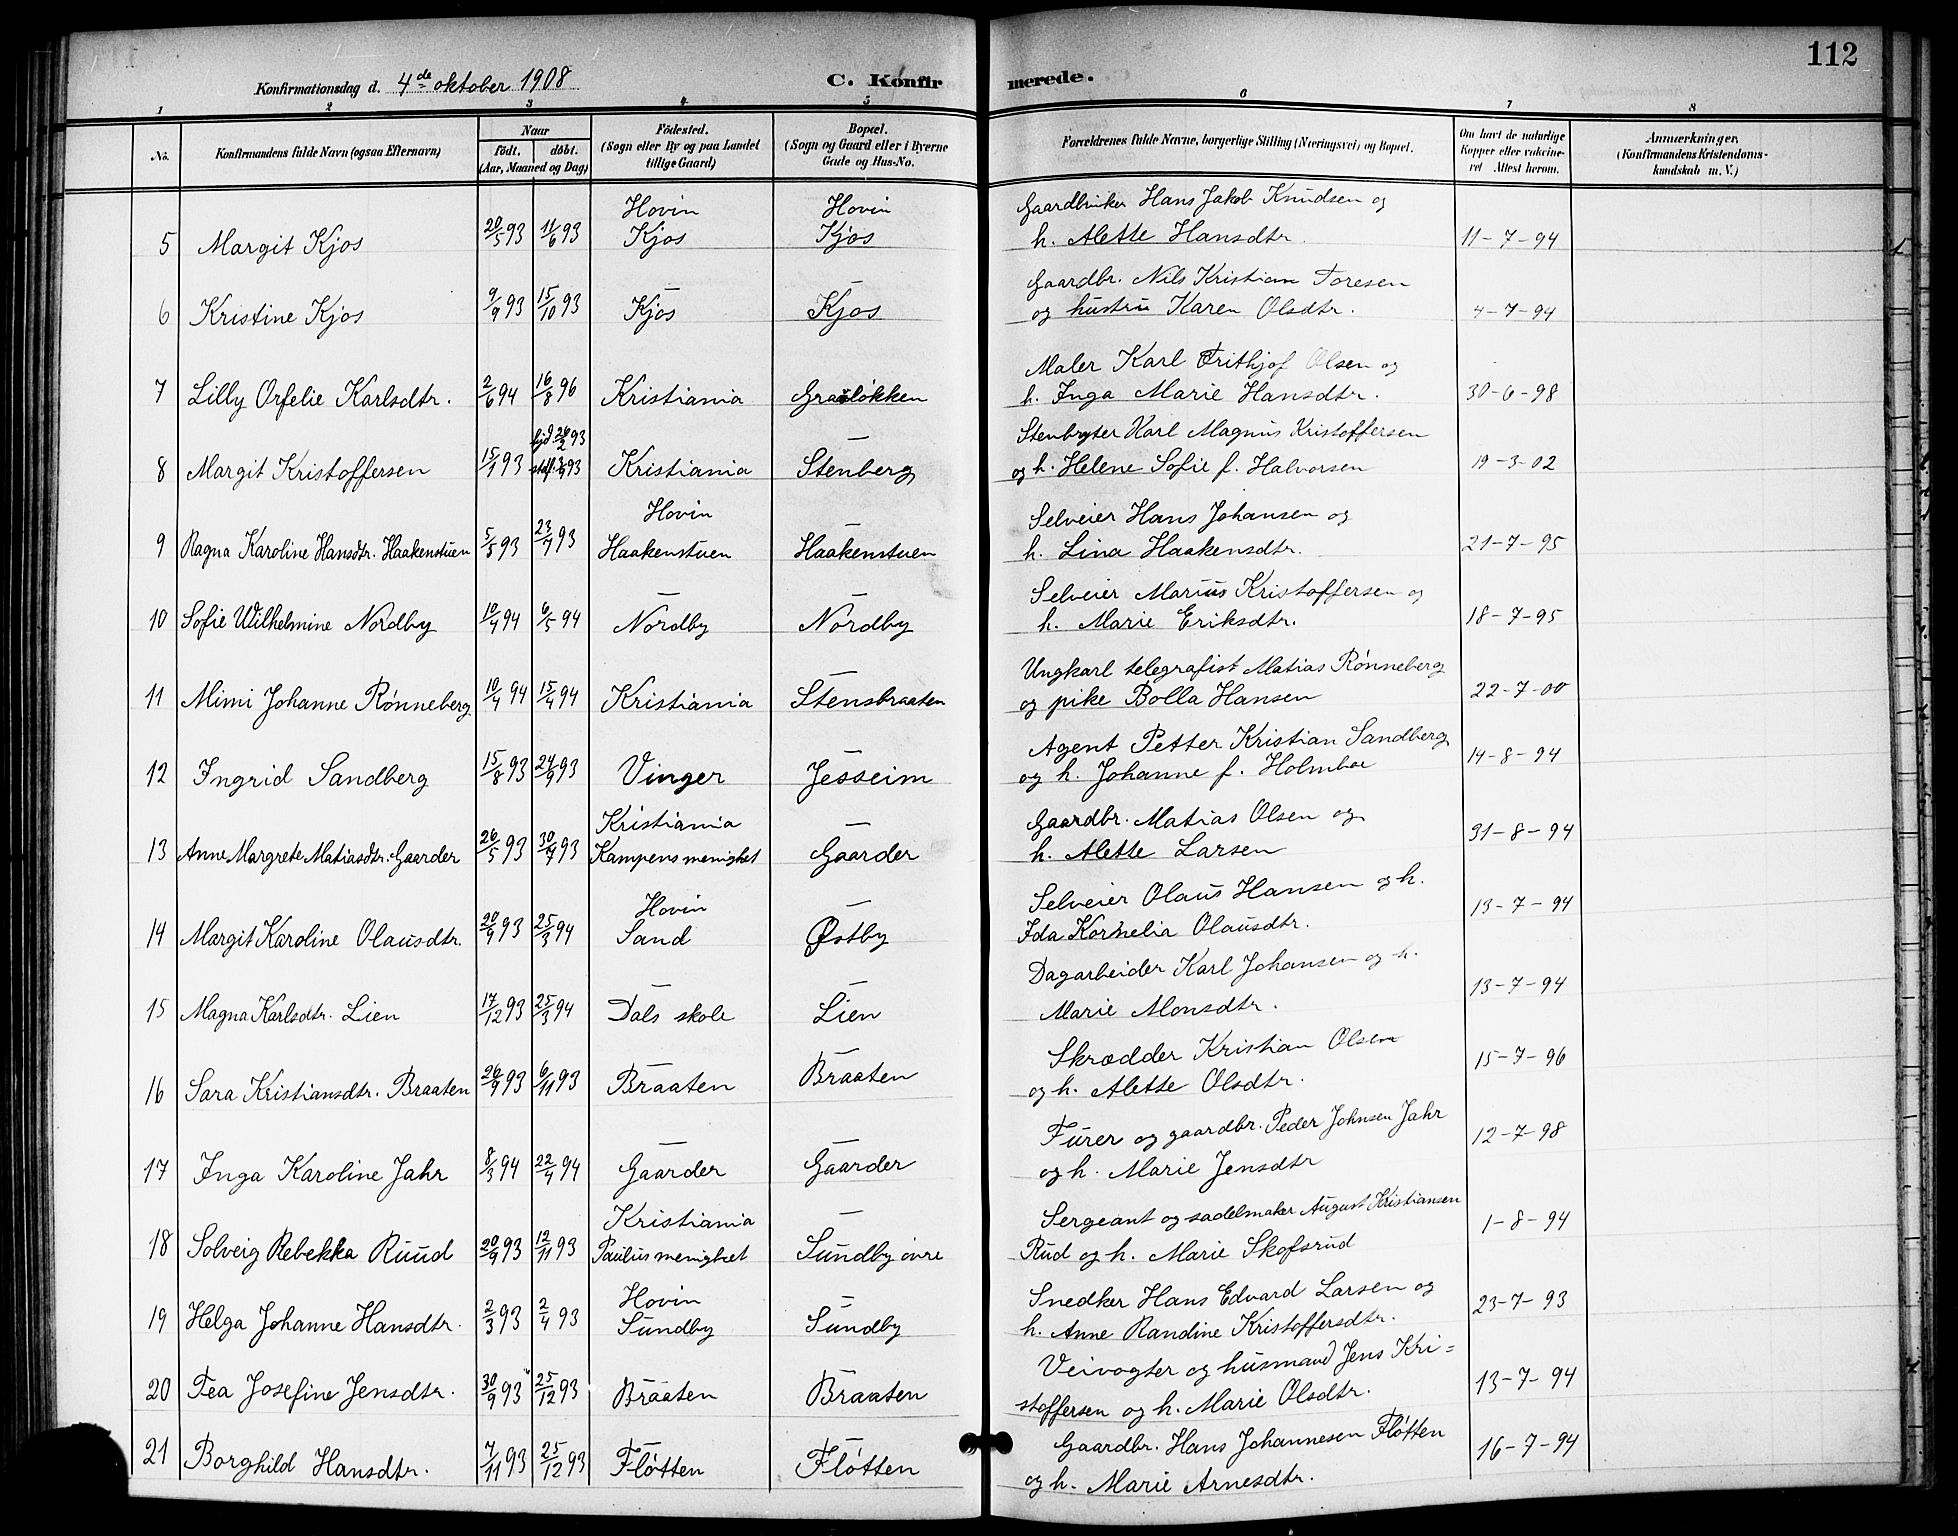 112
Konfirmationsdag d. 4de oktober 1908 C. Konfirmerede.
1 2 3 4 5 6 7 8
No. Konfirmandens fulde Navn (ogsaa Efternavn) Naar født. døbt. (Aar, Maaned og Dag) Fødested. (Sogn eller By og paa Landet tillige Gaard) Bopæl. (Sogn og Gaard eller i Byerne Gade og Hus-No. Forældrenes fulde Navne, borgerlige Stilling (Næringsvei) og Bopæl. Om havt de naturlige Kopper eller vakcineret Attest herom. Anmærkninger. (Konfirmandens Kristendomskundskab m. V.)
Hovin Hovin Gaardbruker Hans Jakob Knudsen og
5 Margit Kjos 20/5 93 11/6 93 Kjos Kjos h. Alette Hansdtr. 11-7-94
— — Gaardbr. Nils Kristian Toresen
6 Kristine Kjos 9/9 93 15/10 93 Kjos Kjos og hustru Karen Olsdtr. 4-7-94
Maler Karl Frithjof Olsen og
7 Lilly Orfelie Karlsdtr. 2/6 94 16/8 96 Kristiania Grasløkken h. Inga Marie Hansdtr. 30-6-98
93 — Stenbryter Karl Magnus Kristoffersen
8 Margit Kristoffersen 15/1 93 93 Kristiania Stenberg og h. Helene Sofie f. Halvorsen 19-3-02
Hovin — Selveier Hans Johansen og
9 Ragna Karoline Hansdtr. Haakenstuen 5/5 93 23/7 93 Haakenstuen Haakenstuen h. Lina Haakensdtr. 21-7-95
— — Selveier Marius Kristoffersen og
10 Sofie Wilhelmine Nordby 10/4 94 6/5 94 Nordby Nordby h. Marie Eriksdtr. 18-7-95
— Ungkarl telegrafist Matias Rønneberg
11 Mimi Johanne Rønneberg 10/4 94 15/4 94 Kristiania Stensbraaten og pike Bolla Hansen 22-7-00
Agent Petter Kristian Sandberg
12 Ingrid Sandberg 15/8 93 24/9 93 Vinger Jesseim og h. Johanne f. Holmboe 14-8-94
Kristiania — Gaardbr. Matias Olsen og
13 Anne Margrete Matiasdtr. Gaarder 26/5 93 30/7 93 Kampens menighet Gaarder h. Alette Larsen 31-8-94
Hovin — Selveier Olaus Hansen og h.
14 Margit Karoline Olausdtr. 20/9 93 25/3 94 Sand Østby Ida Kornelia Olausdtr. 13-7-94
— — Dagarbeider Karl Johansen og h.
15 Magna Karlsdtr. Lien 17/12 93 25/3 94 Dals skole Lien Marie Monsdtr. 13-7-94
— — Skrædder Kristian Olsen
16 Sara Kristiansdtr. Braaten 26/9 93 6/11 93 Braaten Braaten og h. Alette Olsdtr. 15-7-96
— — Furer og gaardbr. Peder Johnsen Jahr
17 Inga Karoline Jahr 8/3 94 22/4 94 Gaarder Gaarder og h. Marie Jensdtr 12-7-98
Kristiania — Sergeant og sadelmaker August Kristiansen
18 Solveig Rebekka Ruud 20/9 93 12/11 93 Paulus menighet Sundby øvre Rud og h. Marie Skofsrud 1-8-94
Hovin — Snedker Hans Edvard Larsen og
19 Helga Johanne Hansdtr. 2/3 93 2/4 93 Sundby Sundby h. Anne Randine Kristoffersdtr. 23-7-93
— — Veivogter og husmand Jens Kri=
20 Tea Josefine Jensdtr. 30/9 93 25/12 93 Braaten Braaten stoffersen og h. Marie Olsdtr. 13-7-94
— — Gaardbr. Hans Johannesen Fløtten
21 Borghild Hansdtr. 7/11 93 25/12 93 Fløtten Fløtten og h. Marie Arnesdtr. 16-7-94